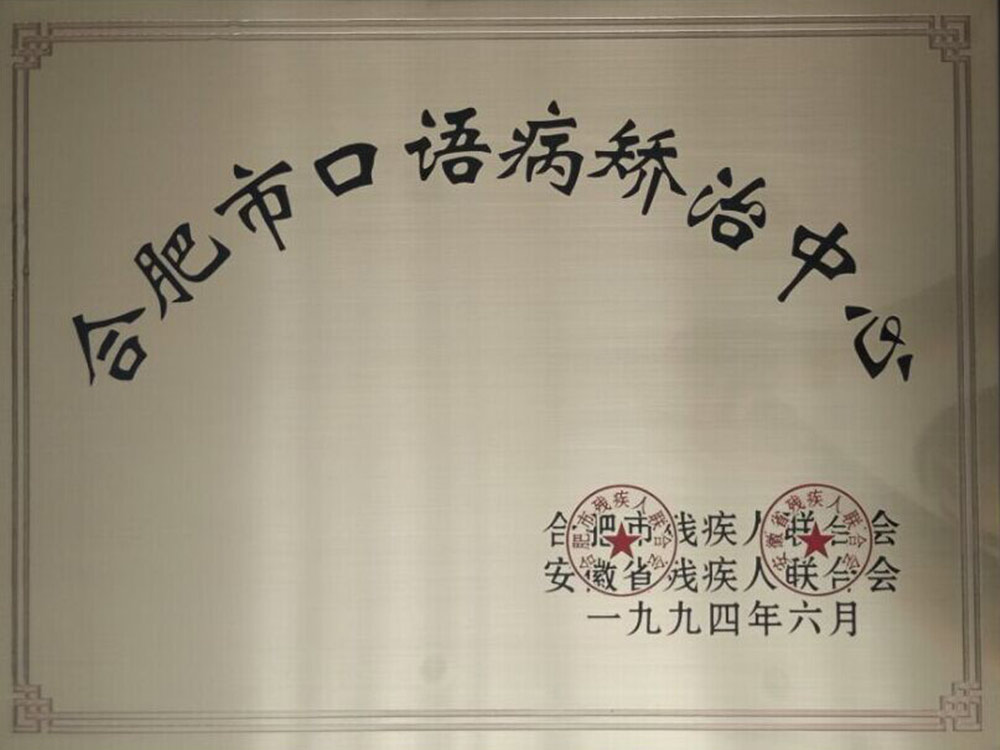 合肥市口语病矫治中心
合肥市残疾人联合会
安徽省残疾人联合会
一九九四年六月
合肥市残疾人联合会
安徽省残疾人联合会